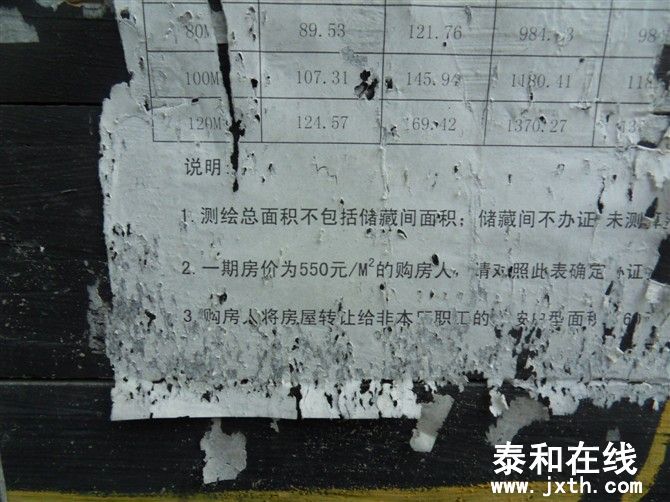 80M 89.53 121.76 984. 3 98
100M 107.31 145.94 1180.41 118
120M 124.57 169.42 1370.27 13
说明:
1. 测绘总面积不包括储藏间面积; 储藏间不办证 未测
2. 一期房价为550元/M²的购房人, 请对照此表确定 办证
3. 购房人将房屋转让给非本厂职工的 按户型面积 60
泰和在线
www.jxth.com